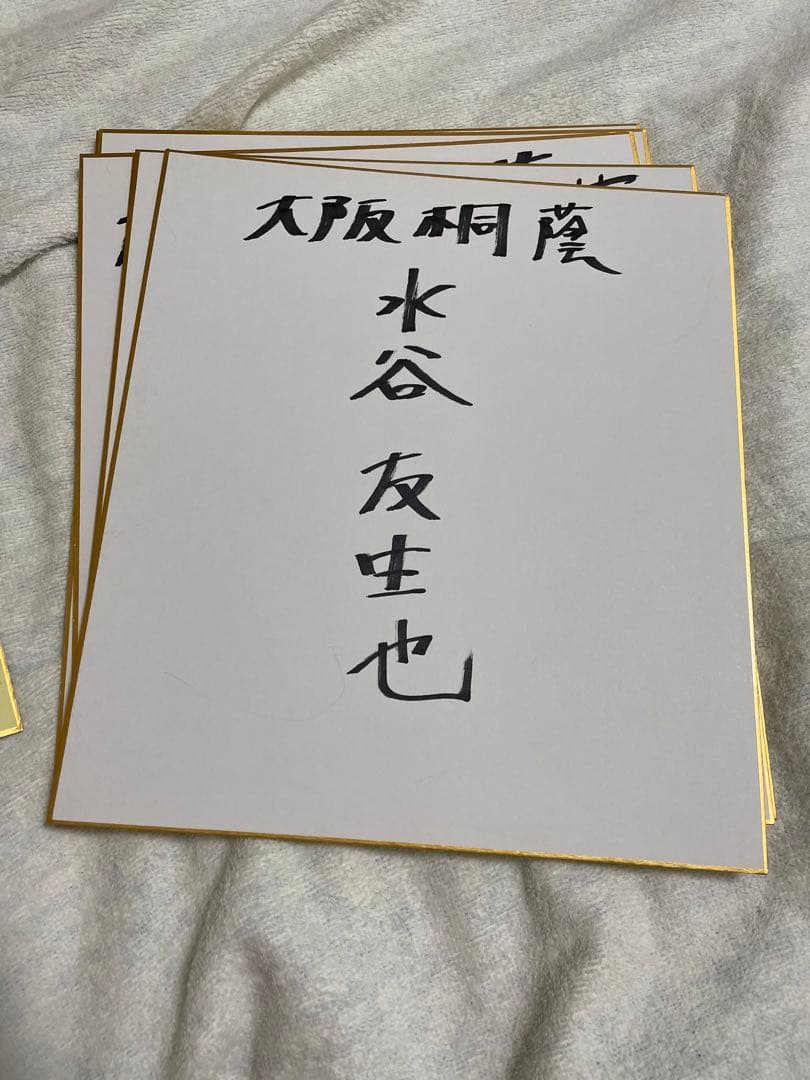 大阪桐蔭
水谷 友生也